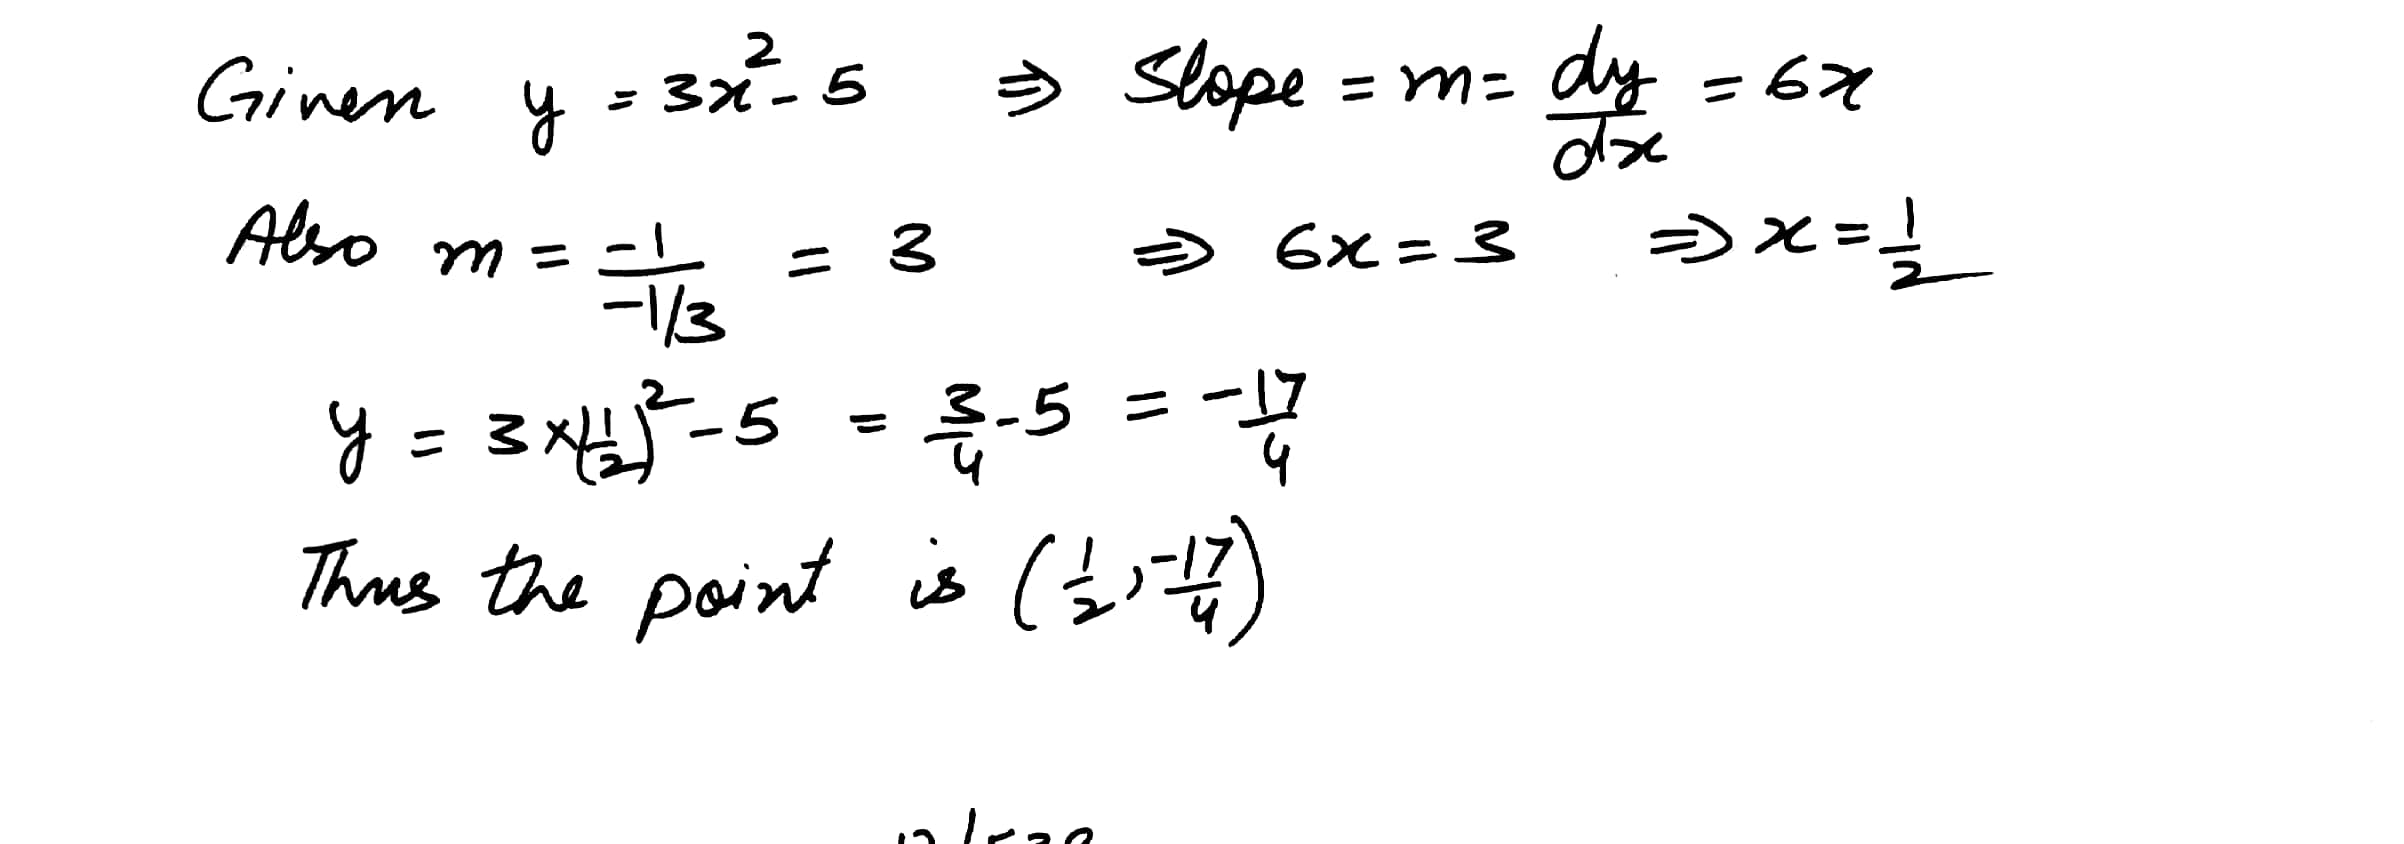 Given y = 3x² - 5 ⇒ Slope = m = dy/dx = 6x
Also m = -1/(-1/3) = 3 ⇒ 6x = 3 ⇒ x = 1/2
y = 3×(1/2)² - 5 = 3/4 - 5 = -17/4
Thus the point is (1/2, -17/4)